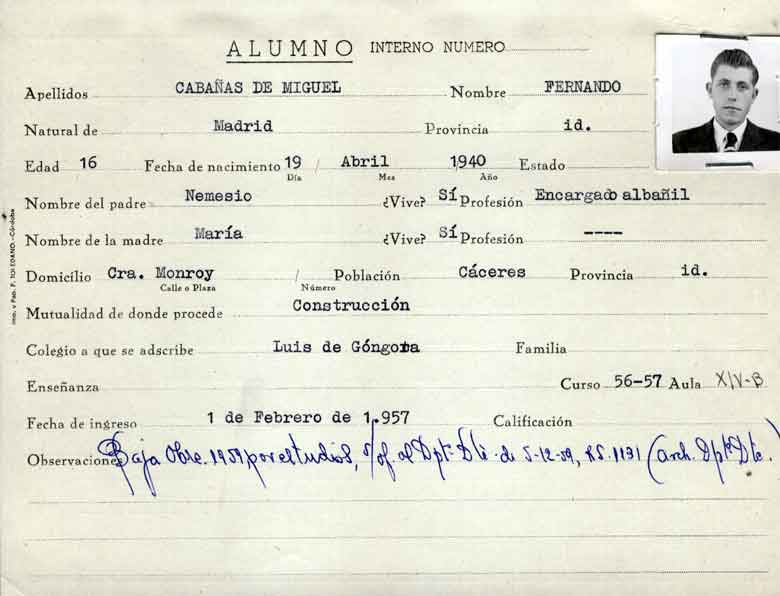 ALUMNO INTERNO NUMERO
Apellidos CABAÑAS DE MIGUEL Nombre FERNANDO
Natural de Madrid Provincia id.
Edad 16 Fecha de nacimiento 19 / Abril / 1,940 Estado
Día Mes Año
Nombre del padre Nemesio ¿Vive? Sí Profesión Encargado albañil
Nombre de la madre María ¿Vive? Sí Profesión ----
Domicilio Cra. Monroy / Población Cáceres Provincia id.
Calle o Plaza Número
Mutualidad de donde procede Construcción
Colegio a que se adscribe Luis de Góngora Familia
Enseñanza Curso 56-57 Aula XIV-B
Fecha de ingreso 1 de Febrero de 1.957 Calificación
Observaciones Baja Obre. 1959 por estudios, s/of. al Dpt. Dte. de 5-12-59, RS. 1131 (arch. Dpt. Dte.)
Imp. y Pap. F. TOLEDANO.-Córdoba